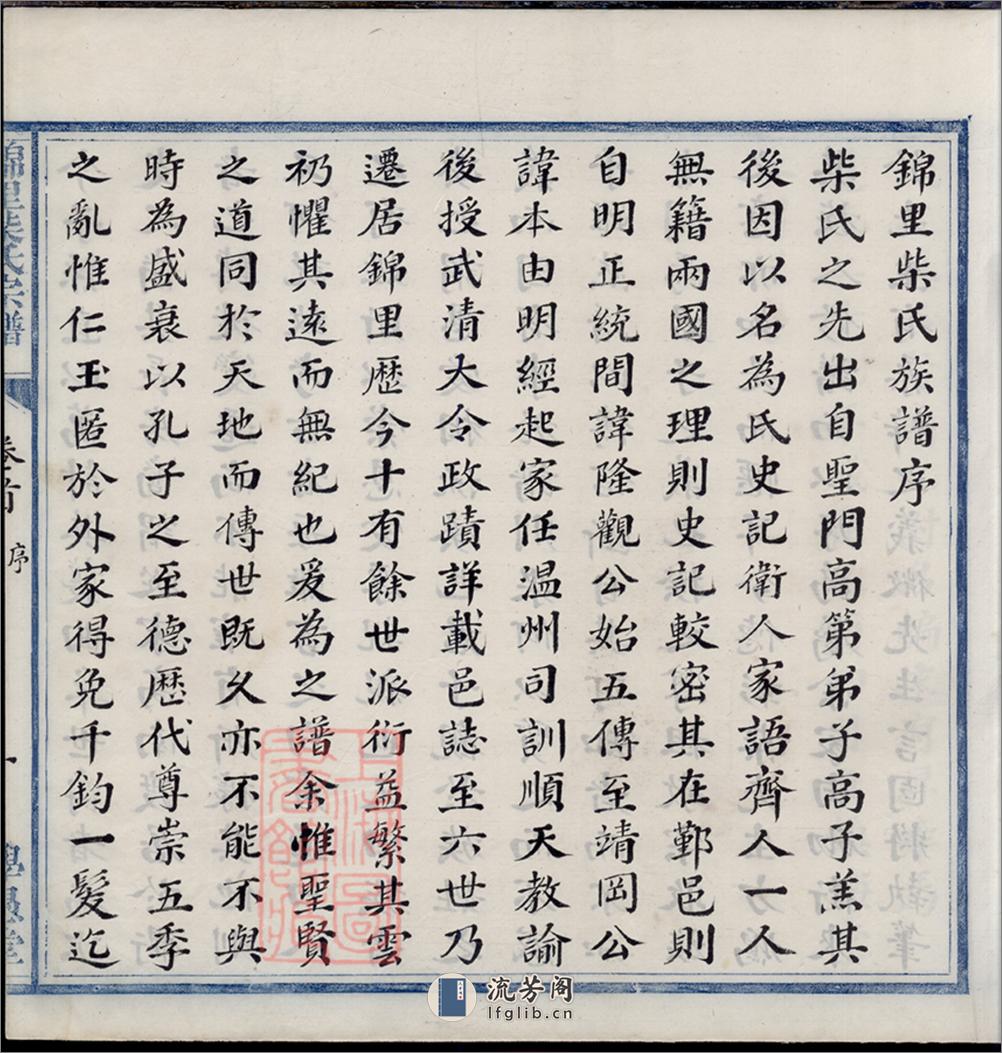 錦里柴氏族譜序
柴氏之先出自聖門高第弟子高子羔其
後因以名為氏史記衛人家語齊人一人
無籍兩國之理則史記較密其在鄞邑則
自明正統間諱隆觀公始五傳至靖岡公
諱本由明經起家任温州司訓順天教諭
後授武清大令政蹟詳載邑誌至六世乃
遷居錦里歷今十有餘世派衍益繁其雲
礽懼其遠而無紀也爰為之譜余惟聖賢
之道同於天地而傳世既久亦不能不與
時為盛衰以孔子之至德歷代尊崇五季
之亂惟仁玉匿於外家得免千鈞一髮迄
錦里柴氏宗譜
卷首
序
一
上海圖書館藏
流芳阁
lfglib.cn